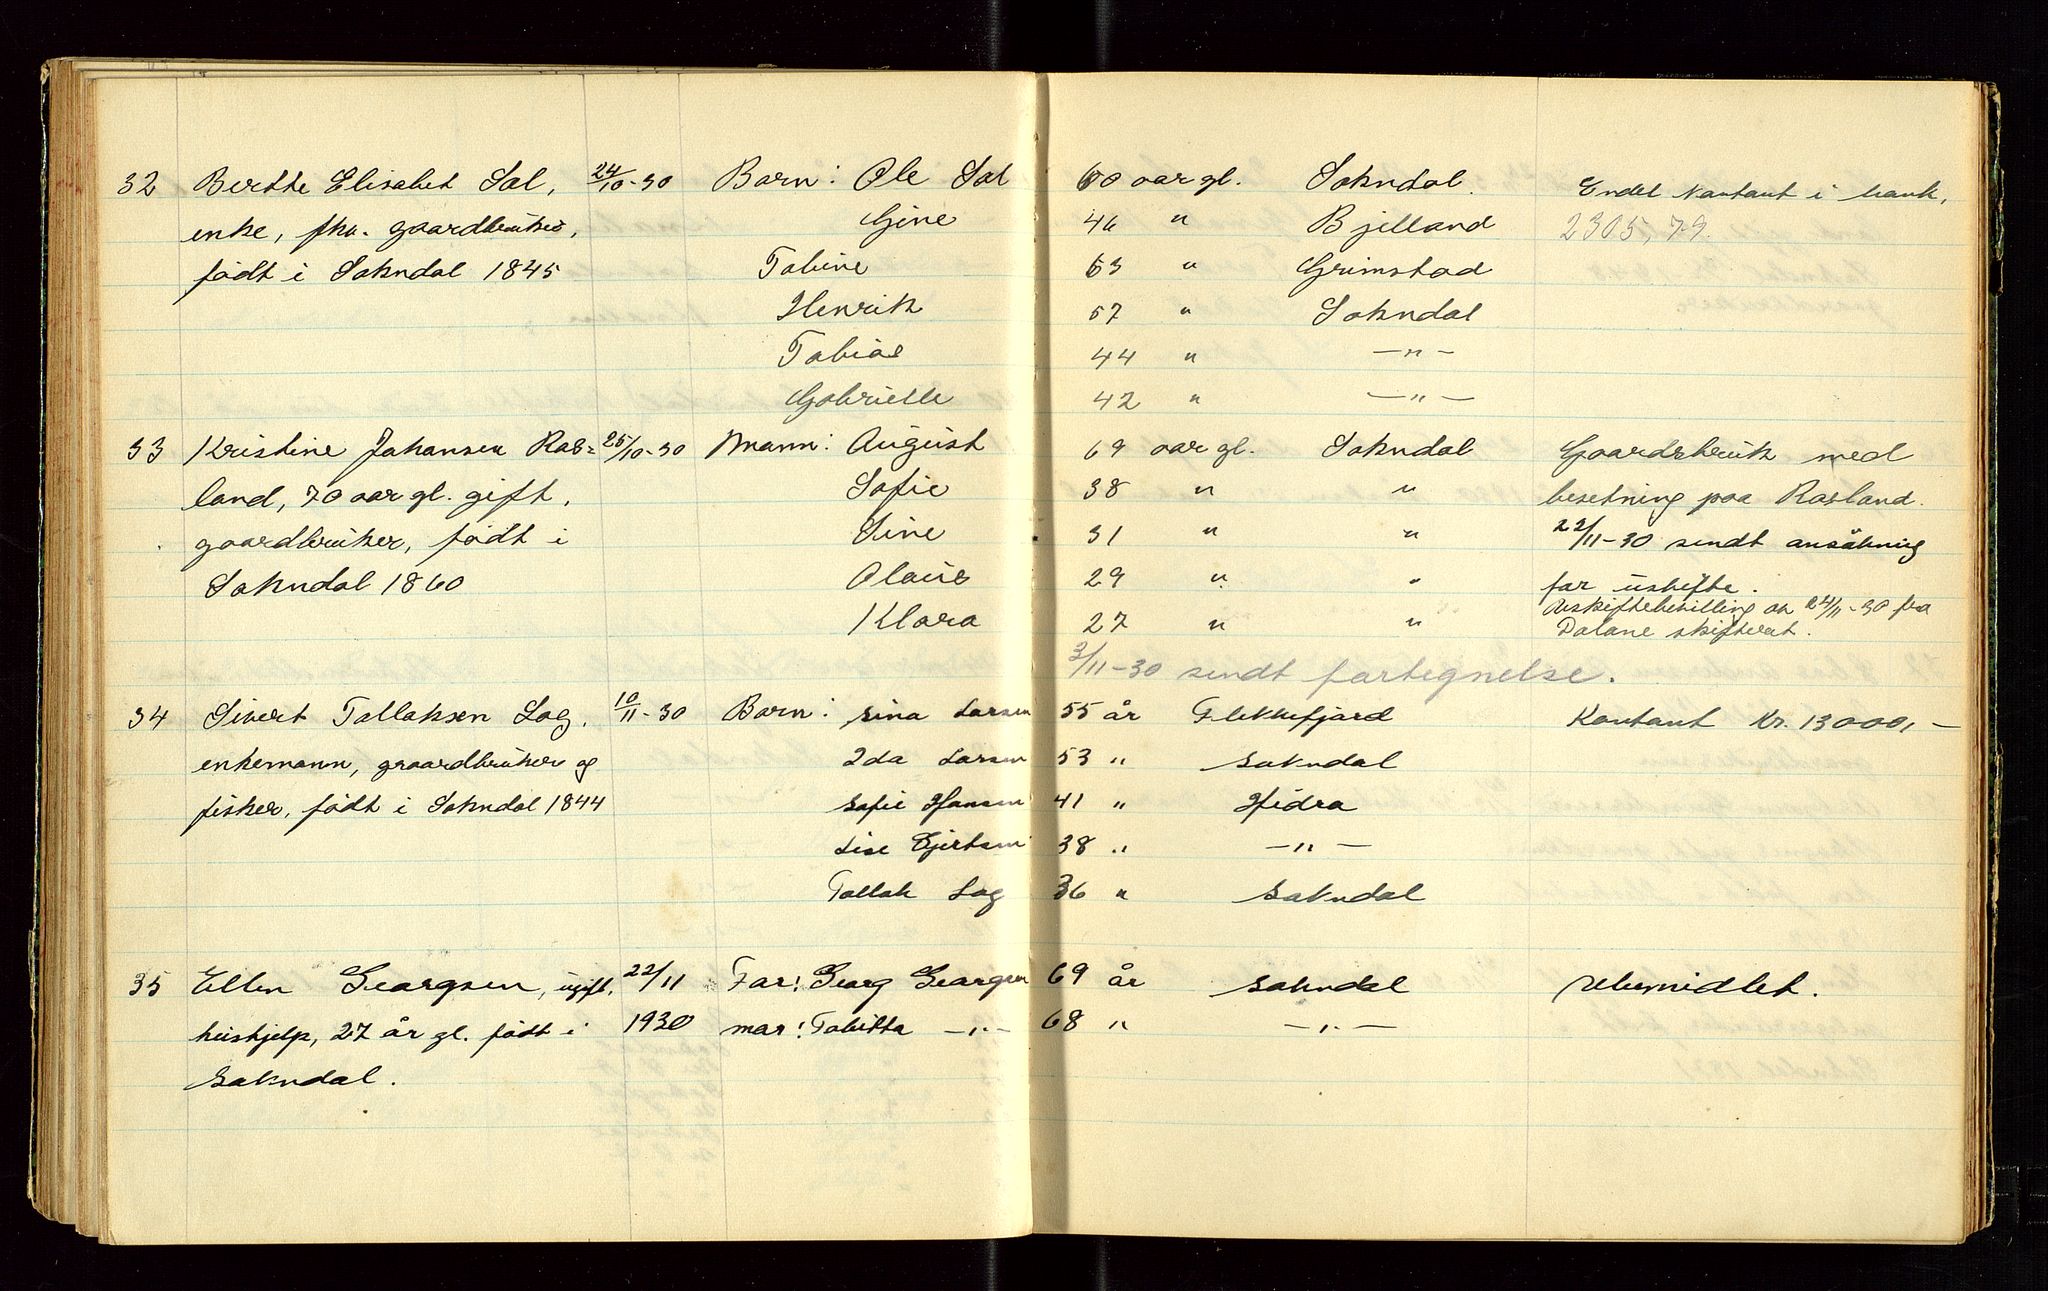 32 Berthe Elisabet Sal, 24/10-30 Barn: Ole Sal 60 aar gl. Sokndal. Endel kontant i bank,
enke, fhv. gaardbruker, Gine 46 " Bjelland 2305,79.
født i Sokndal 1845 Tobine 53 " Grimstad
Henrik 57 " Sokndal
Tobias 44 " -"-
Gabrielle 42 " -"-
33 Kristine Johansen Ras= 25/10-30 Mann: August 69 aar gl. Sokndal Gaardsbruk med
land, 70 aar gl. gift, Sofie 38 " " besetning paa Rasland.
gaardbruker, født i Sine 31 " " 22/11-30 sendt ansökning
Sokndal 1860 Olaus 29 " " for uskifte.
Klara 27 " " Uskiftebevilling av 24/11-30 fra
Dalane skifteret.
3/11-30 sendt fortegnelse.
34 Sivert Tollaksen Log, 10/11-30 Barn: Sina Larsen 55 år Flekkefjord Kontant Kr. 13000,-
enkemann, graardbruker og Ida Larsen 53 " Sokndal
fisker, født i Sokndal 1844 Sofie Hansen 41 " Hidra
Lise Gjertsen 38 " -"-
Tollak Log 36 " Sokndal
35 Ellen Georgsen, ugift, 22/11 Far: Georg Georgsen 69 år Sokndal Ubemidlet.
hushjelp, 27 år gl. født i 1930 mor: Tobitta -"- 68 " -"-
Sokndal.